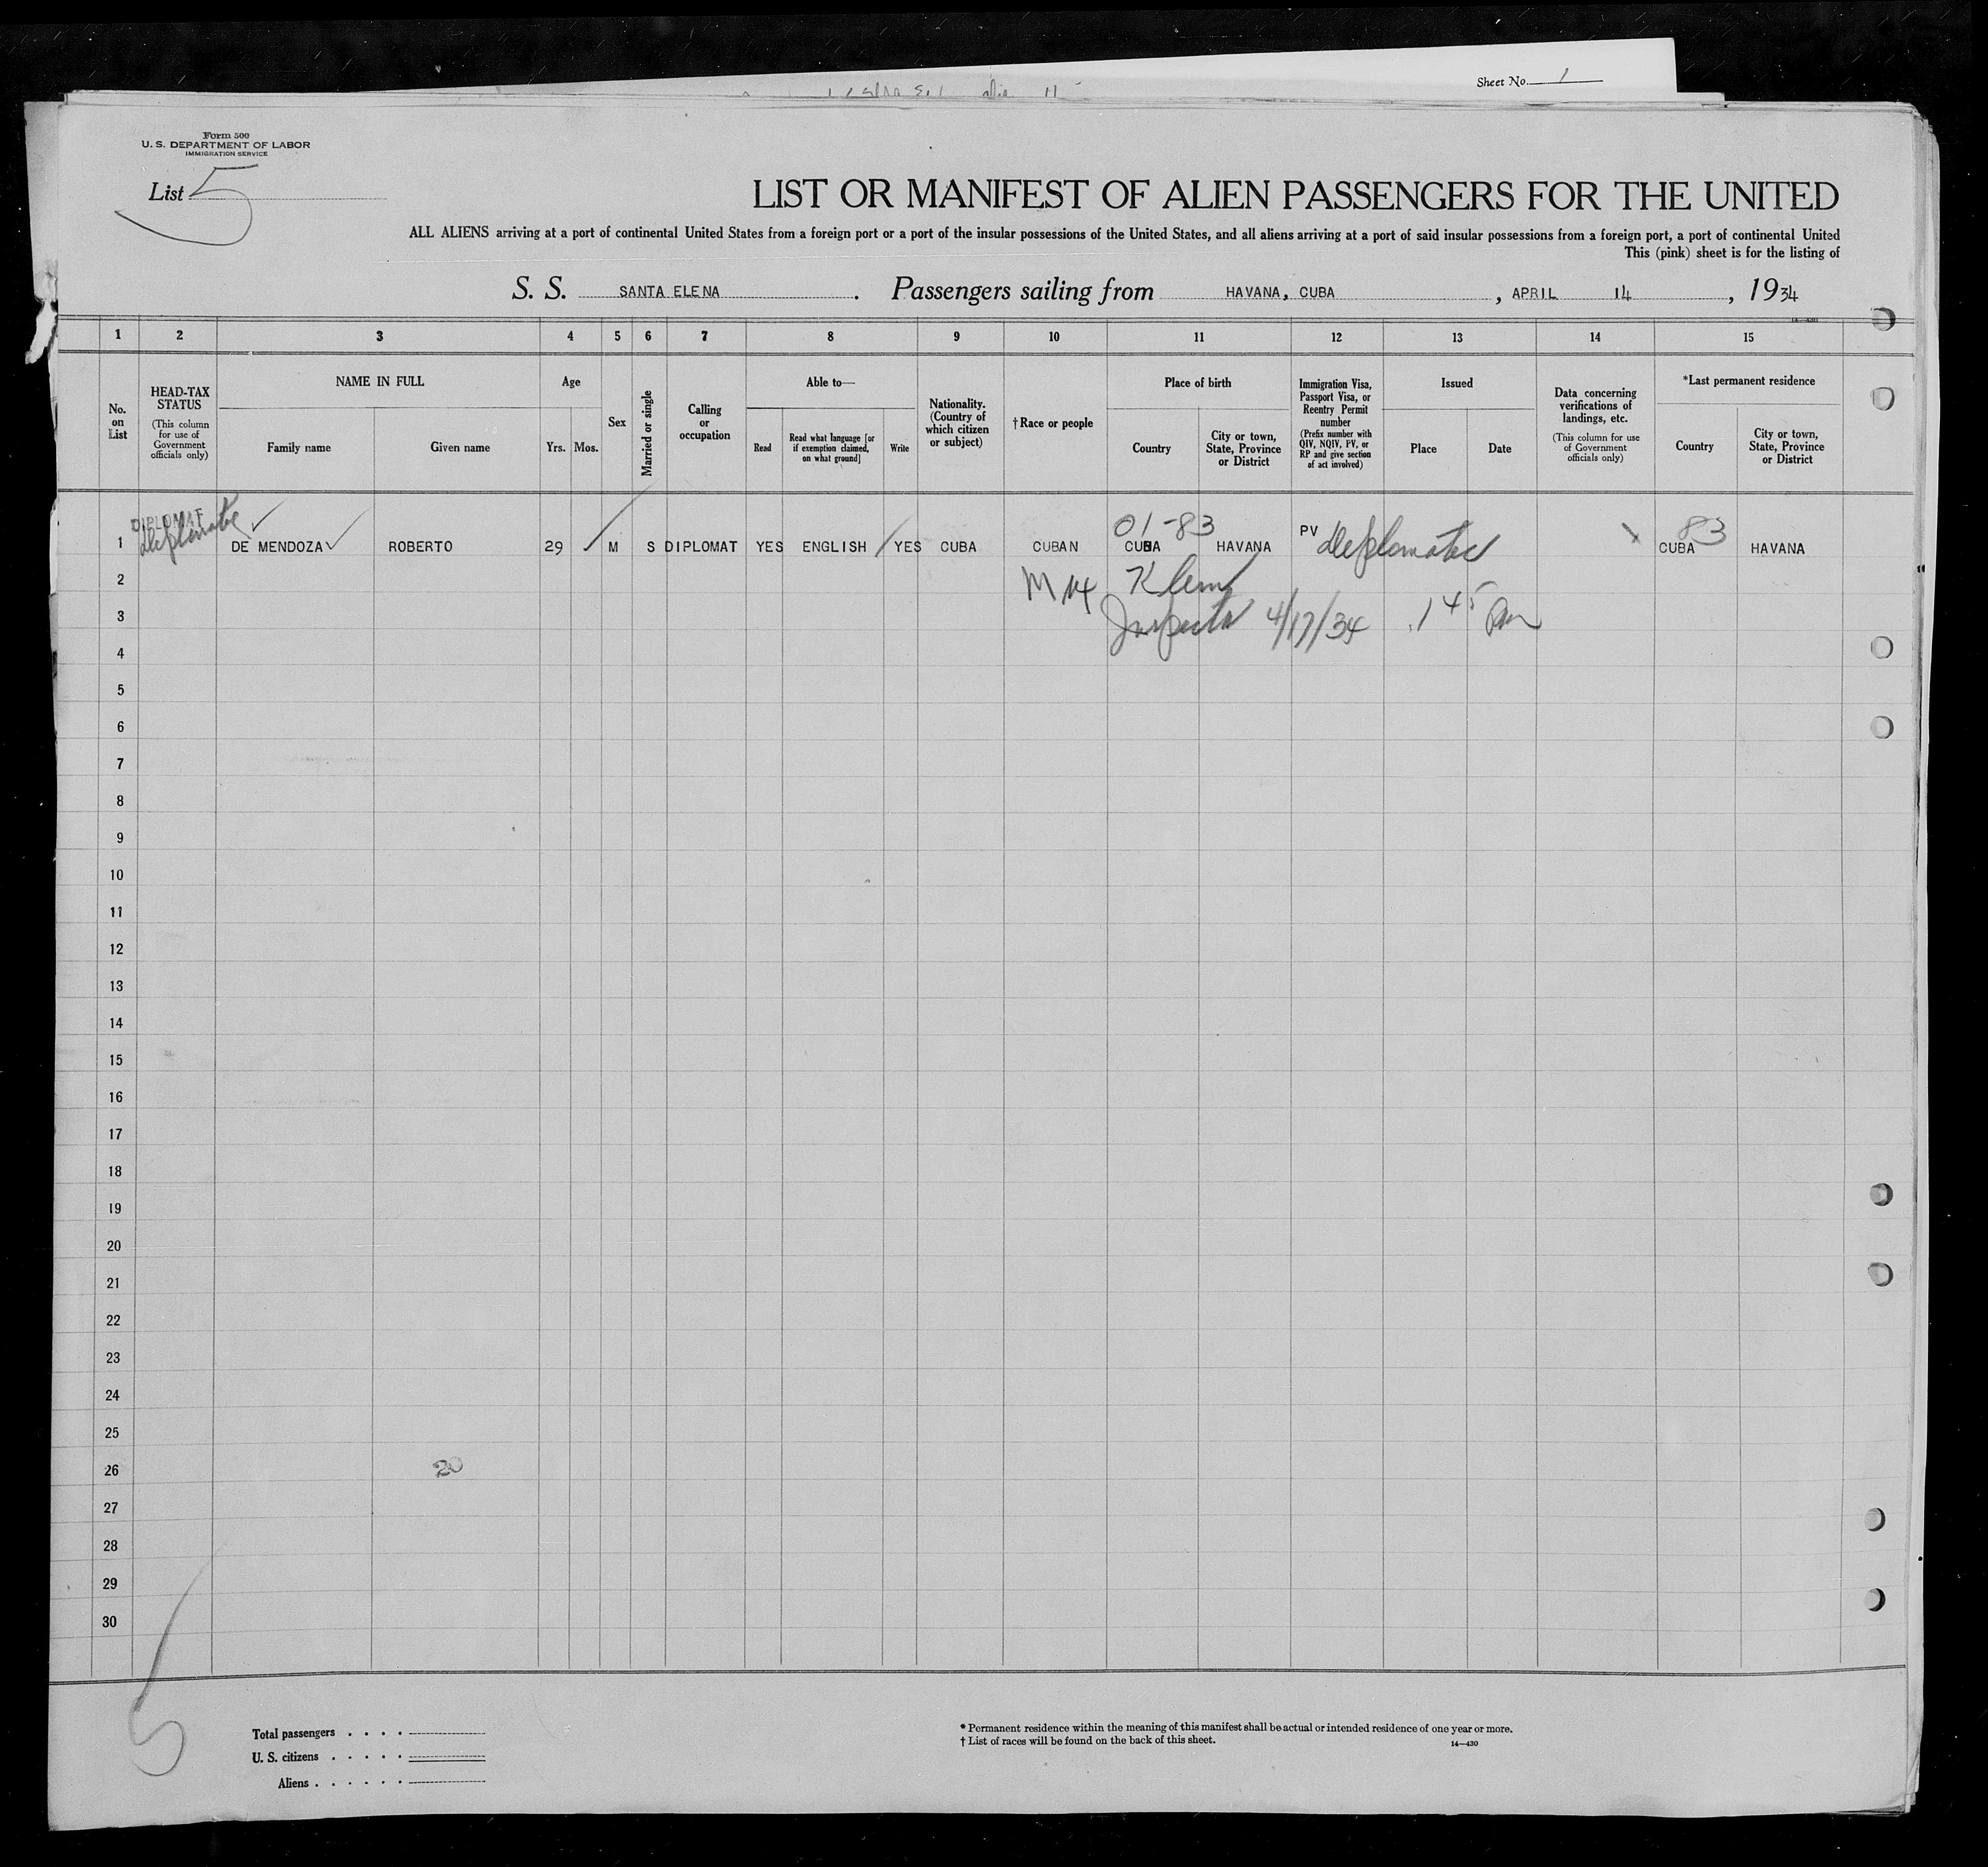 Sheet No. 1
Form 500
U. S. DEPARTMENT OF LABOR
IMMIGRATION SERVICE
List 5
LIST OR MANIFEST OF ALIEN PASSENGERS FOR THE UNITED
ALL ALIENS arriving at a port of continental United States from a foreign port or a port of the insular possessions of the United States, and all aliens arriving at a port of said insular possessions from a foreign port, a port of continental United
This (pink) sheet is for the listing of
S. S. SANTA ELENA. Passengers sailing from HAVANA, CUBA, APRIL 14, 1934
14—430
1 2 3 4 5 6 7 8 9 10 11 12 13 14 15
No.
on
List
HEAD-TAX
STATUS
(This column
for use of
Government
officials only)
NAME IN FULL
Family name Given name
Age
Yrs. Mos.
Sex
Married or single
Calling
or
occupation
Able to—
Read
Read what language [or
if exemption claimed,
on what ground]
Write
Nationality.
(Country of
which citizen
or subject)
†Race or people
Place of birth
Country
City or town,
State, Province
or District
Immigration Visa,
Passport Visa, or
Reentry Permit
number
(Prefix number with
QIV, NQIV, PV, or
RP and give section
of act involved)
Issued
Place Date
Data concerning
verifications of
landings, etc.
(This column for use
of Government
officials only)
*Last permanent residence
Country
City or town,
State, Province
or District
DIPLOMAT
01-83 83
1 DE MENDOZA ROBERTO 29 M S DIPLOMAT YES ENGLISH YES CUBA CUBAN CUBA HAVANA PV Diplomatic CUBA HAVANA
2
3 Inspector 4/17/34 1 45 pm
4
5
6
7
8
9
10
11
12
13
14
15
16
17
18
19
20
21
22
23
24
25
26 20
27
28
29
30
5
Total passengers . . . .
U. S. citizens . . . . .
Aliens . . . . . .
* Permanent residence within the meaning of this manifest shall be actual or intended residence of one year or more.
† List of races will be found on the back of this sheet.
14—430